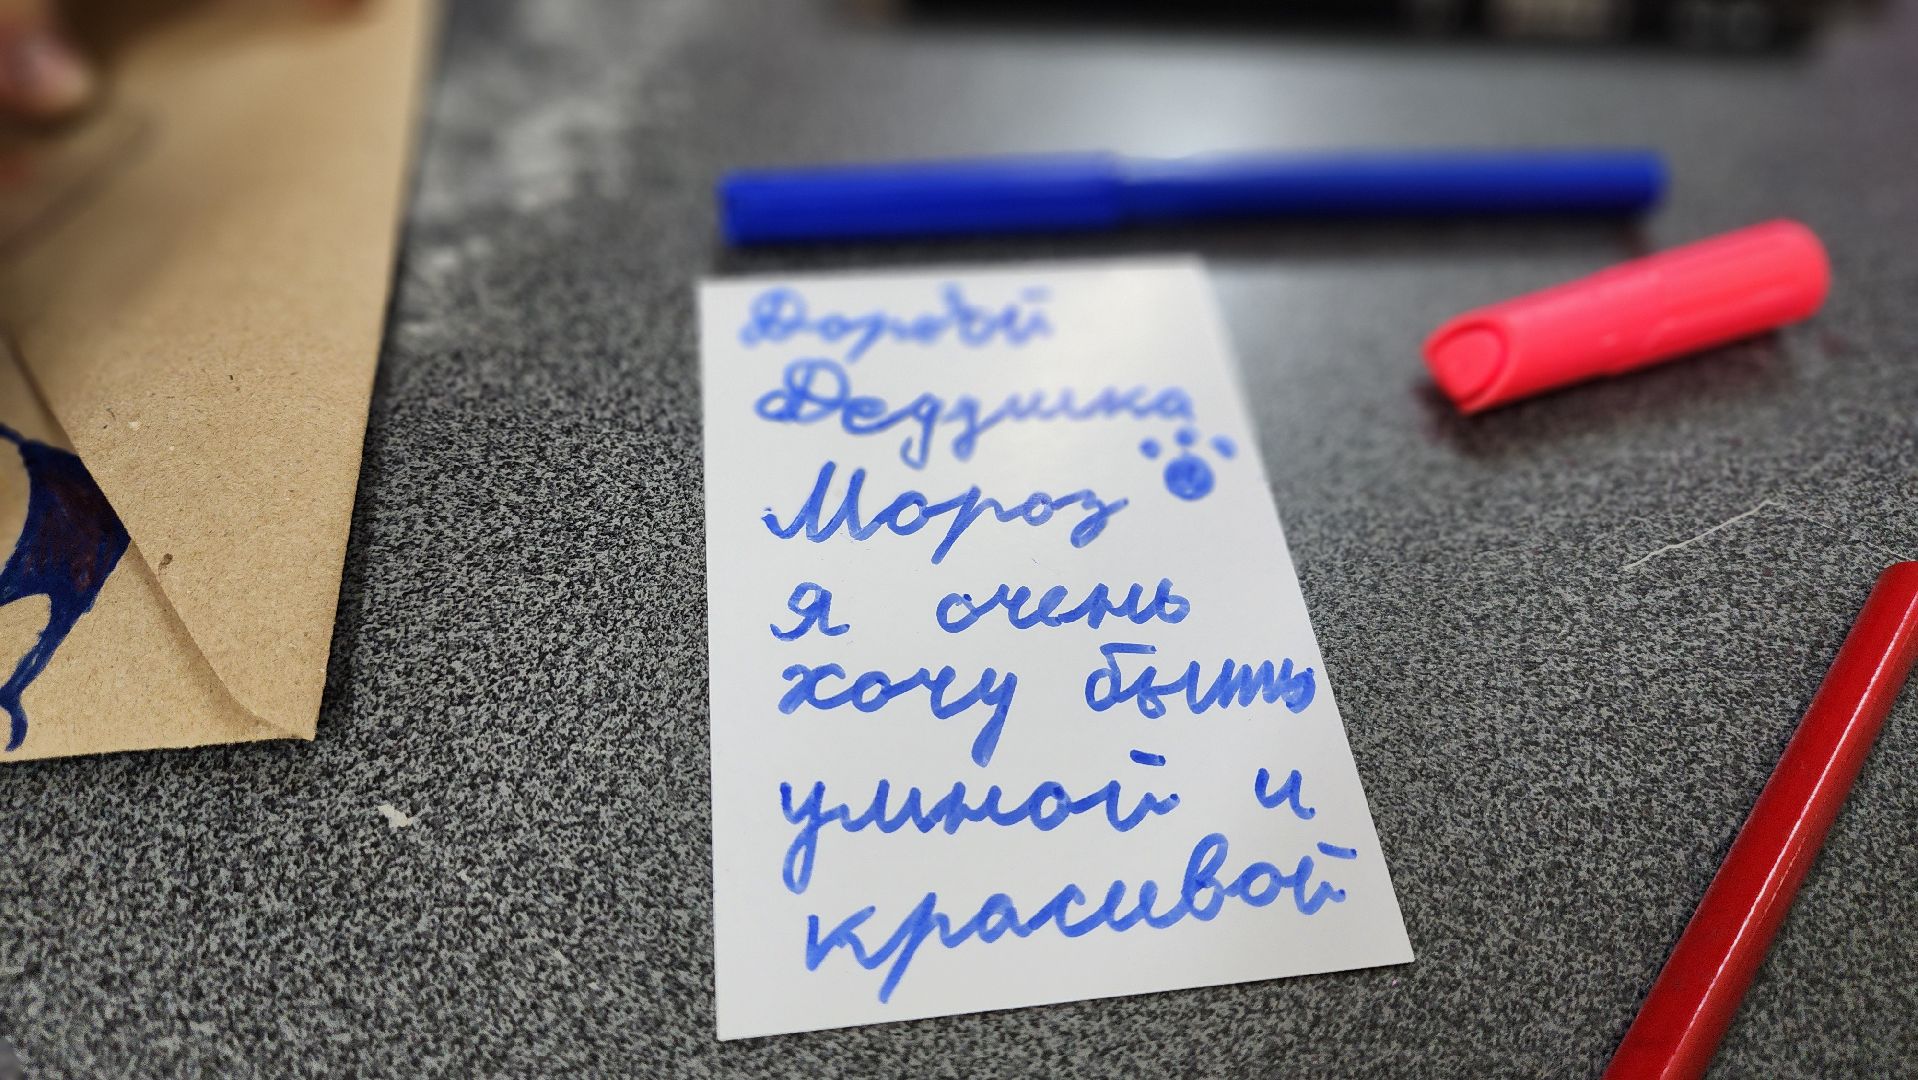 Дедушка
Мороз
я очень
хочу быть
умной и
красивой